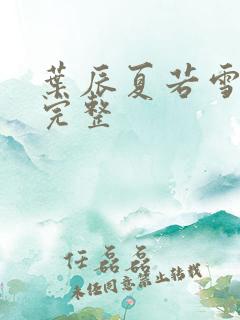 葉辰夏若雪
完整
任磊磊
未经同意禁止转载